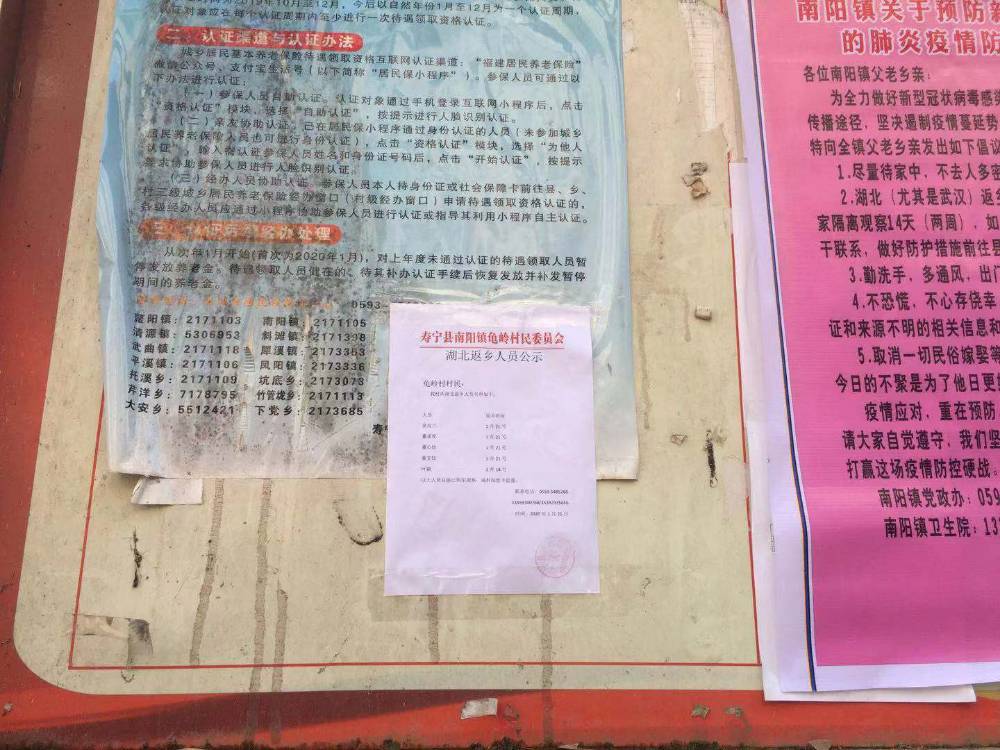 2019年10月至12月，今后以自然年份1月至12月为一个认证周期，
认证对象应在每个认证周期内至少进行一次待遇领取资格认证。
二、认证渠道与认证办法
城乡居民基本养老保险待遇领取资格互联网认证渠道：“福建居民养老保险”
微信公众号、支付宝生活号（以下简称“居民保小程序”）。参保人员可通过以
下办法进行认证：
（一）参保人员自助认证。认证对象通过手机登录互联网小程序后，点击
“资格认证”模块，选择“自助认证”，按提示进行人脸识别认证。
（二）亲友协助认证。已在居民保小程序通过身份认证的人员（未参加城乡
居民养老保险人员也可进行身份认证），点击“资格认证”模块，选择“为他人
认证”，输入待认证参保人员姓名和身份证号码后，点击“开始认证”，按提示
要求协助参保人员进行人脸识别认证。
（三）经办人员协助认证。参保人员本人持身份证或社会保障卡前往县、乡、
村三级城乡居民养老保险经办窗口（村级经办窗口）申请待遇领取资格认证的，
各级经办人员应通过小程序协助参保人员进行认证或指导其利用小程序自主认证。
三、
处理
从次年1月开始(首次为2020年1月)，对上年度未通过认证的待遇领取人员暂
停发放养老金。待遇领取人员健在的，待其补办认证手续后恢复发放并补发暂停
期间的养老金。
0593-
鳌阳镇：2171103 南阳镇：2171105
清源镇：5305953 斜滩镇：2171398
武曲镇：2171118 犀溪镇：2173353
平溪镇：2171106 凤阳镇：2173336
托溪乡：2171109 坑底乡：2173073
芹洋乡：7178795 竹管垅乡：2171113
大安乡：5512421 下党乡：2173685
寿宁
寿宁县南阳镇龟岭村民委员会
湖北返乡人员公示
龟岭村村民：
南阳镇关于预防新
的肺炎疫情防
各位南阳镇父老乡亲：
为全力做好新型冠状病毒感
传播途径，坚决遏制疫情蔓延势
特向全镇父老乡亲发出如下倡议
1.尽量待家中，不去人多密
2.湖北（尤其是武汉）返乡
家隔离观察14天（两周），如
干联系，做好防护措施前往县
3.勤洗手，多通风，出门
4.不恐慌，不心存侥幸
证和来源不明的相关信息和
5.取消一切民俗嫁娶等
今日的不聚是为了他日更
疫情应对，重在预防
请大家自觉遵守，我们坚
打赢这场疫情防控硬战。
南阳镇党政办：059
南阳镇卫生院：13